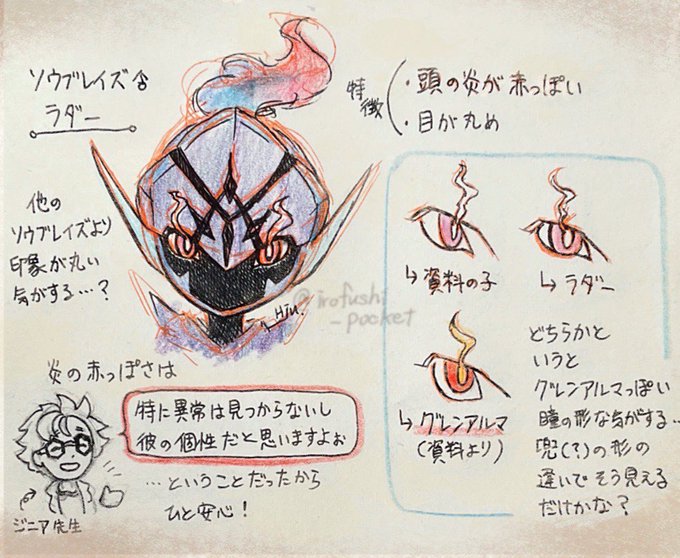 ソウブレイズ♂
ラダー
特徴
・頭の炎が赤っぽい
・目が丸め
他の
ソウブレイズより
印象が丸い
気がする…?
Hju.
@irofushi
-pocket
↳資料の子
↳ラダー
↳グレンアルマ
(資料より)
どちらかと
いうと
グレンアルマっぽい
瞳の形な気がする…
兜(?)の形の
違いでそう見える
だけかな?
炎の赤っぽさは
特に異常は見つからないし
彼の個性だと思いますよぉ
…ということだったから
ひと安心!
ジニア先生